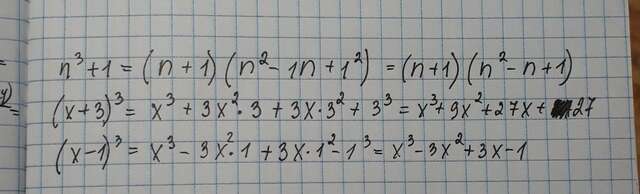 n³+1 = (n+1)(n²-1n+1²) = (n+1)(n²-n+1)
(x+3)³ = x³+3x²·3+3x·3²+3³ = x³+9x²+27x+27
(x-1)³ = x³-3x²·1+3x·1²-1³ = x³-3x²+3x-1